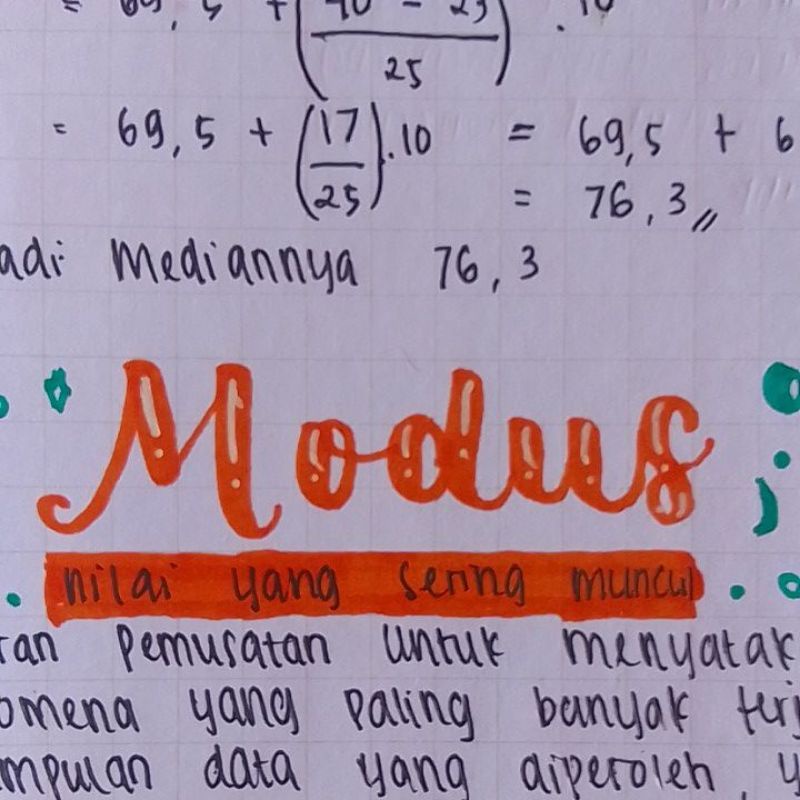 = 69,5 + (40 - 23 / 25) . 10
= 69,5 + (17/25) . 10 = 69,5 + 6
= 76,3
adi mediannya 76,3
Modus
nilai yang sering muncul
ran pemusatan untuk menyatak
omena yang paling banyak terj
mpulan data yang diperoleh, y